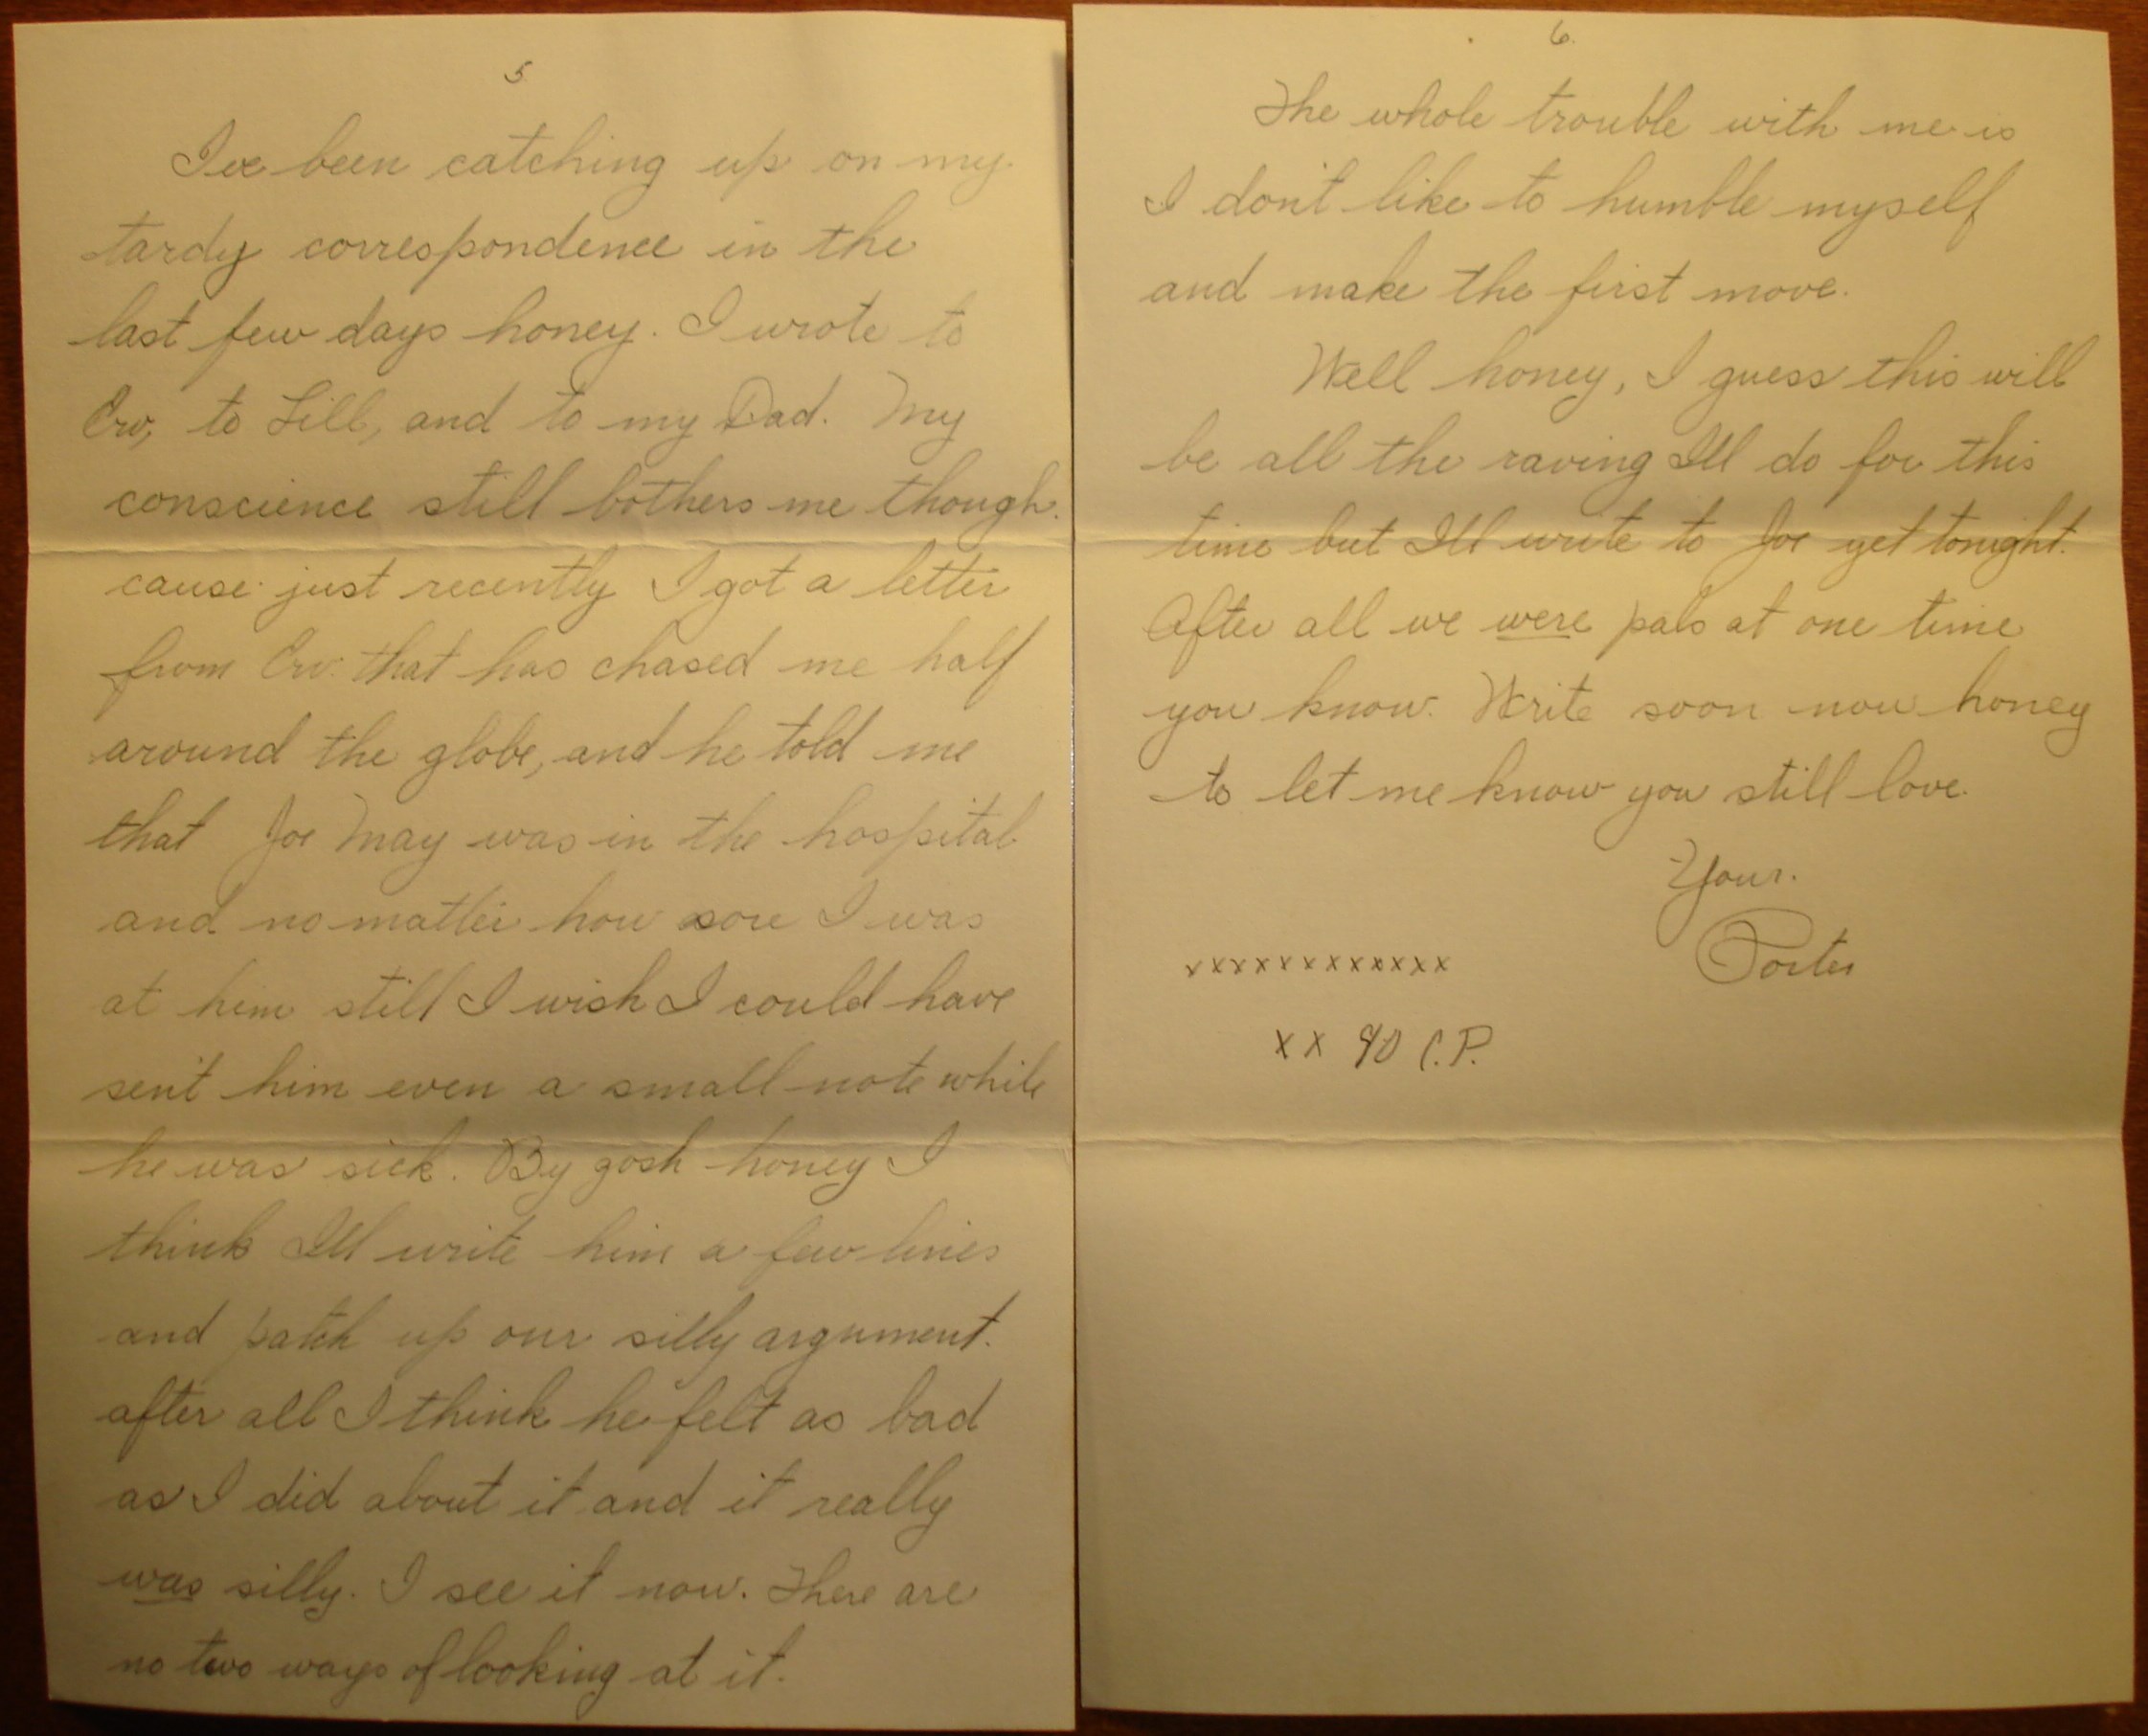 5
I've been catching up on my
tardy correspondence in the
last few days honey. I wrote to
Erv, to Lill, and to my Dad. My
conscience still bothers me though.
cause just recently I got a letter
from Erv. that has chased me half
around the globe, and he told me
that Joe May was in the hospital
and no matter how sore I was
at him still I wish I could have
sent him even a small note while
he was sick. By gosh honey I
think I'll write him a few lines
and patch up our silly argument.
after all I think he felt as bad
as I did about it and it really
was silly. I see it now. There are
no two ways of looking at it.
6.
The whole trouble with me is
I don't like to humble myself
and make the first move.
Well honey, I guess this will
be all the raving I'll do for this
time but I'll write to Joe yet tonight.
After all we were pals at one time
you know. Write soon now honey
to let me know you still love.
Your.
Porter
xxxxxxxxxxxx
xx 90 C.P.